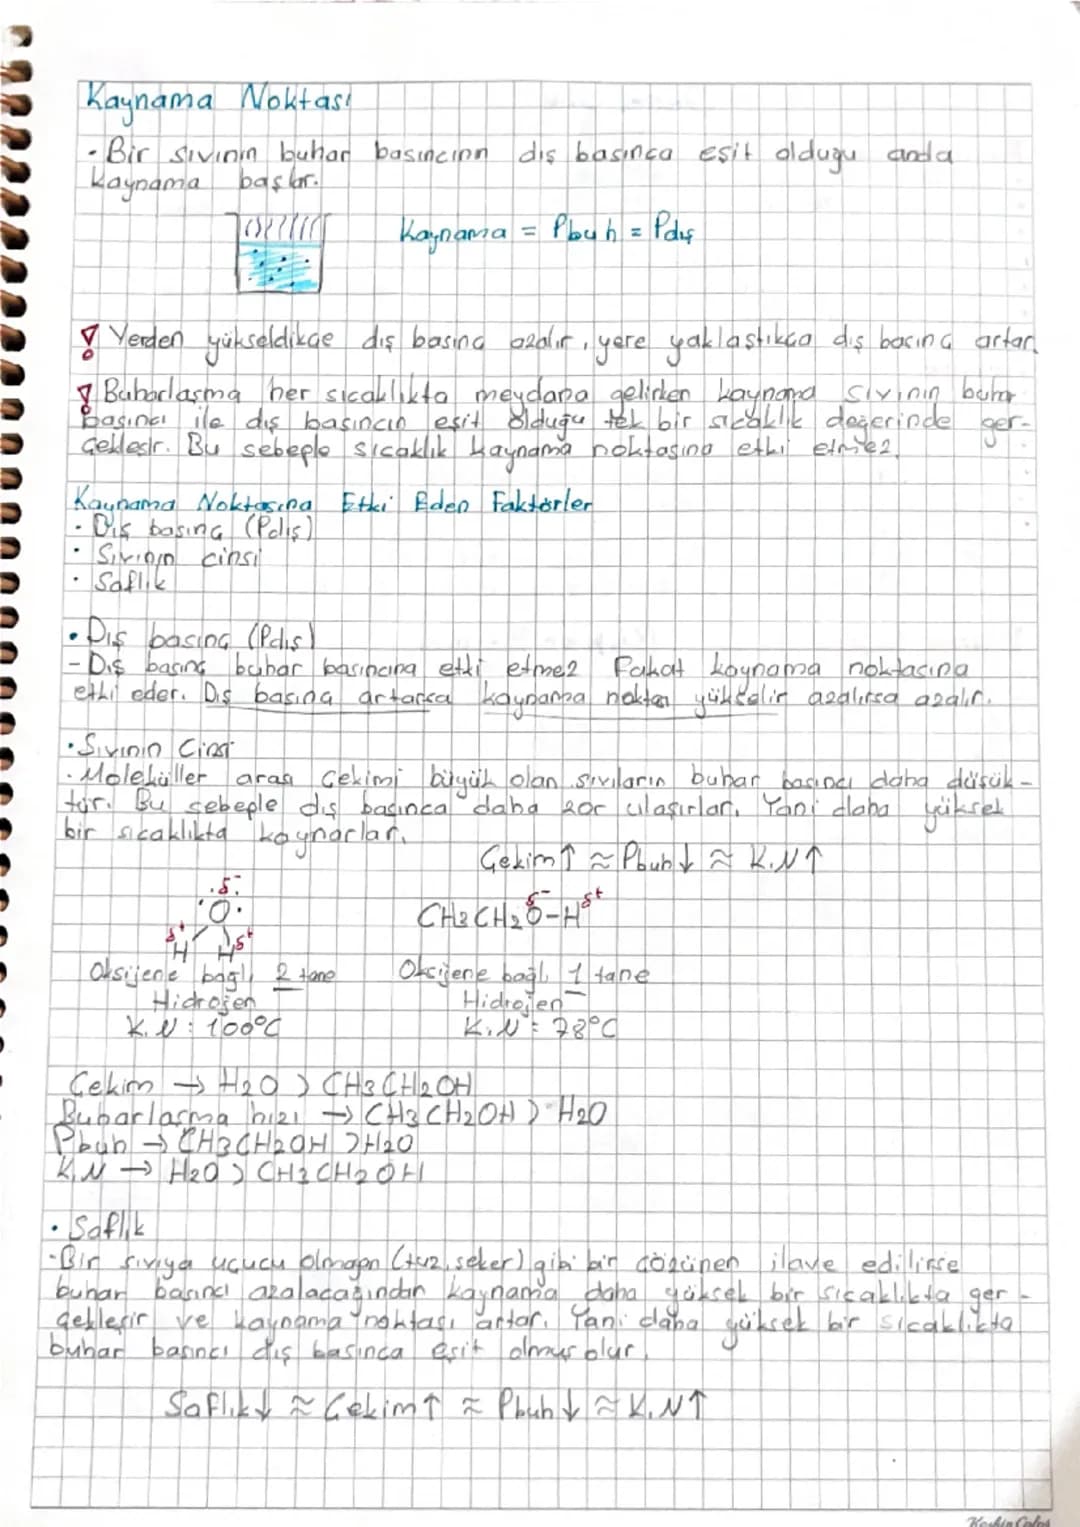 Kaynama Noktası
• Bir sıvının buhar basıncının dış basınca eşit olduğu anda
kaynama başlar.
Kaynama = Pbuh = Pdış
Yerden yükseldikçe dış basınç azalır, yere yaklaştıkça dış basınç artar.
Buharlaşma her sıcaklıkta meydana gelirken kaynama sıvının buhar
basıncı ile dış basıncın eşit olduğu tek bir sıcaklık değerinde ger-
çekleşir. Bu sebeple sıcaklık kaynama noktasına etki etmez.
Kaynama Noktasına Etki Eden Faktörler
• Dış basınç (Pdış)
• Sıvının cinsi
• Saflık
• Dış basınç (Pdış)
- Dış basınç buhar basıncına etki etmez Fakat kaynama noktasına
etki eder. Dış basınç artarsa kaynama noktası yükselir azalırsa azalır.
• Sıvının Cinsi
• Moleküller arası Çekimi büyük olan sıvıların buhar basıncı daha düşük-
tür. Bu sebeple dış basınca daha zor ulaşırlar. Yani daha yüksek
bir sıcaklıkta kaynarlar.
Çekim↑ ≈ Pbuh↓ ≈ K.N↑
δ-
O
δ+ δ+
H H
CH3CH2O-H
δ- δ+
Oksijene bağlı 2 tane
Hidrojen
K.N: 100°C
Oksijene bağlı 1 tane
Hidrojen
K.N: 78°C
Çekim → H2O > CH3CH2OH
Buharlaşma hızı → CH3CH2OH > H2O
Pbuh → CH3CH2OH > H2O
K.N → H2O > CH3CH2OH
• Saflık
- Bir sıvıya uçucu olmayan (tuz, şeker) gibi bir çözünen ilave edilirse
buhar basıncı azalacağından kaynama daha yüksek bir sıcaklıkta ger-
çekleşir ve kaynama noktası artar. Yani daha yüksek bir sıcaklıkta
buhar basıncı dış basınca eşit olmuş olur.
Saflık↓ ≈ Çekim↑ ≈ Pbuh↓ ≈ K.N↑